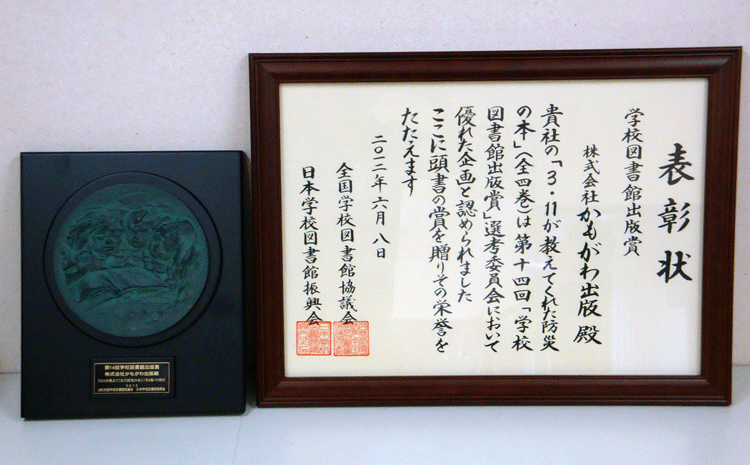 表彰状
学校図書館出版賞
株式会社かもがわ出版 殿
貴社の「3・11が教えてくれた防災
の本」(全四巻)は第十四回「学校
図書館出版賞」選考委員会において
優れた企画と認められました
ここに頭書の賞を贈りその栄誉を
たたえます
二〇一二年六月八日
全国学校図書館協議会
日本学校図書館振興会
第14回学校図書館出版賞
株式会社かもがわ出版殿